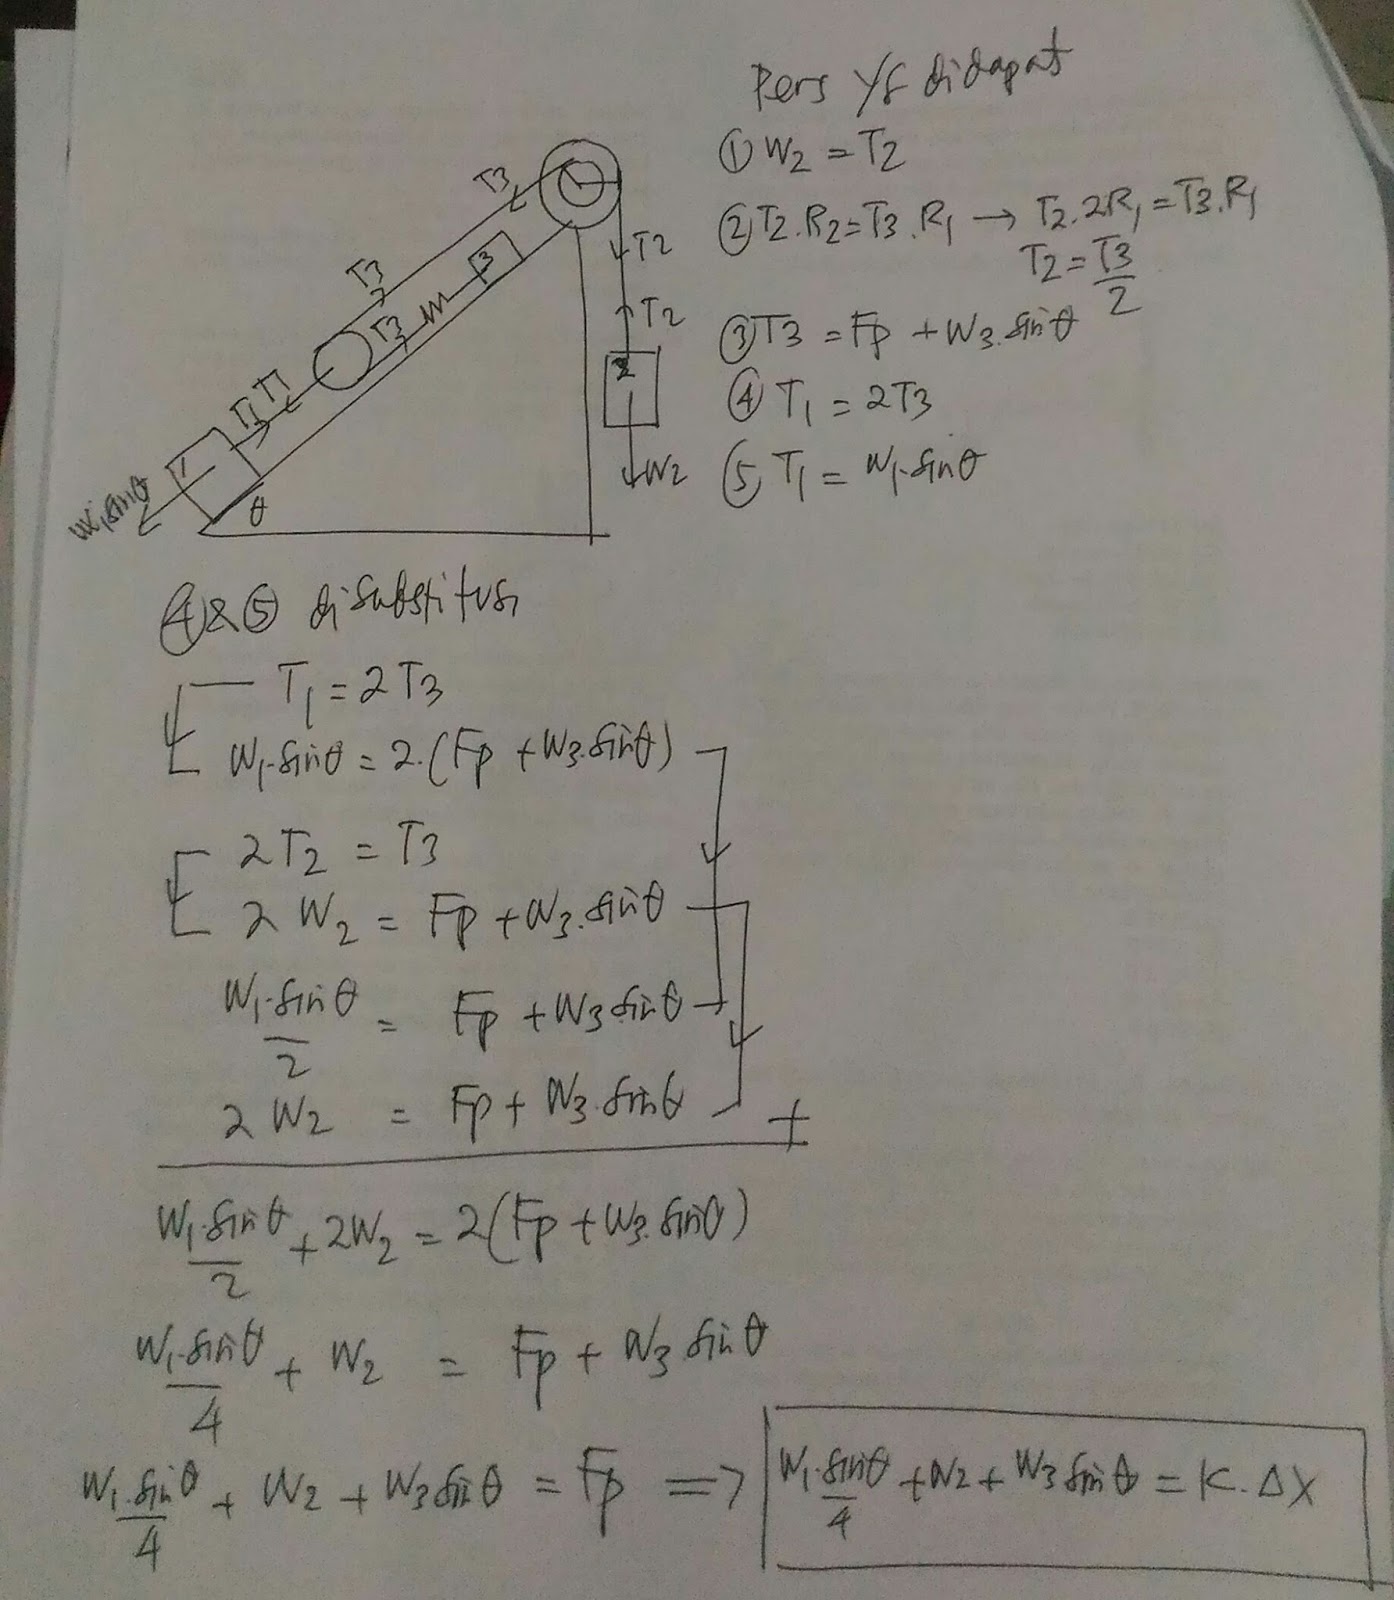 Pers yg didapat
① W2 = T2
② T2.R2 = T3.R1 → T2.2R1 = T3.R1
T2 = T3/2
③ T3 = Fp + W3.sinθ
④ T1 = 2T3
⑤ T1 = W1.sinθ
T3
T2
T3
3
T2
T3
2
T1
T1
1
W2
W1sinθ
θ
④&⑤ disubstitusi
T1 = 2T3
W1.sinθ = 2.(Fp + W3.sinθ)
2T2 = T3
2W2 = Fp + W3.sinθ
W1.sinθ/2 = Fp + W3 sinθ
2W2 = Fp + W3.sinθ +
W1.sinθ/2 + 2W2 = 2(Fp + W3.sinθ)
W1.sinθ/4 + W2 = Fp + W3 sinθ
W1.sinθ/4 + W2 + W3 sinθ = Fp => W1.sinθ/4 + W2 + W3 sinθ = K.ΔX